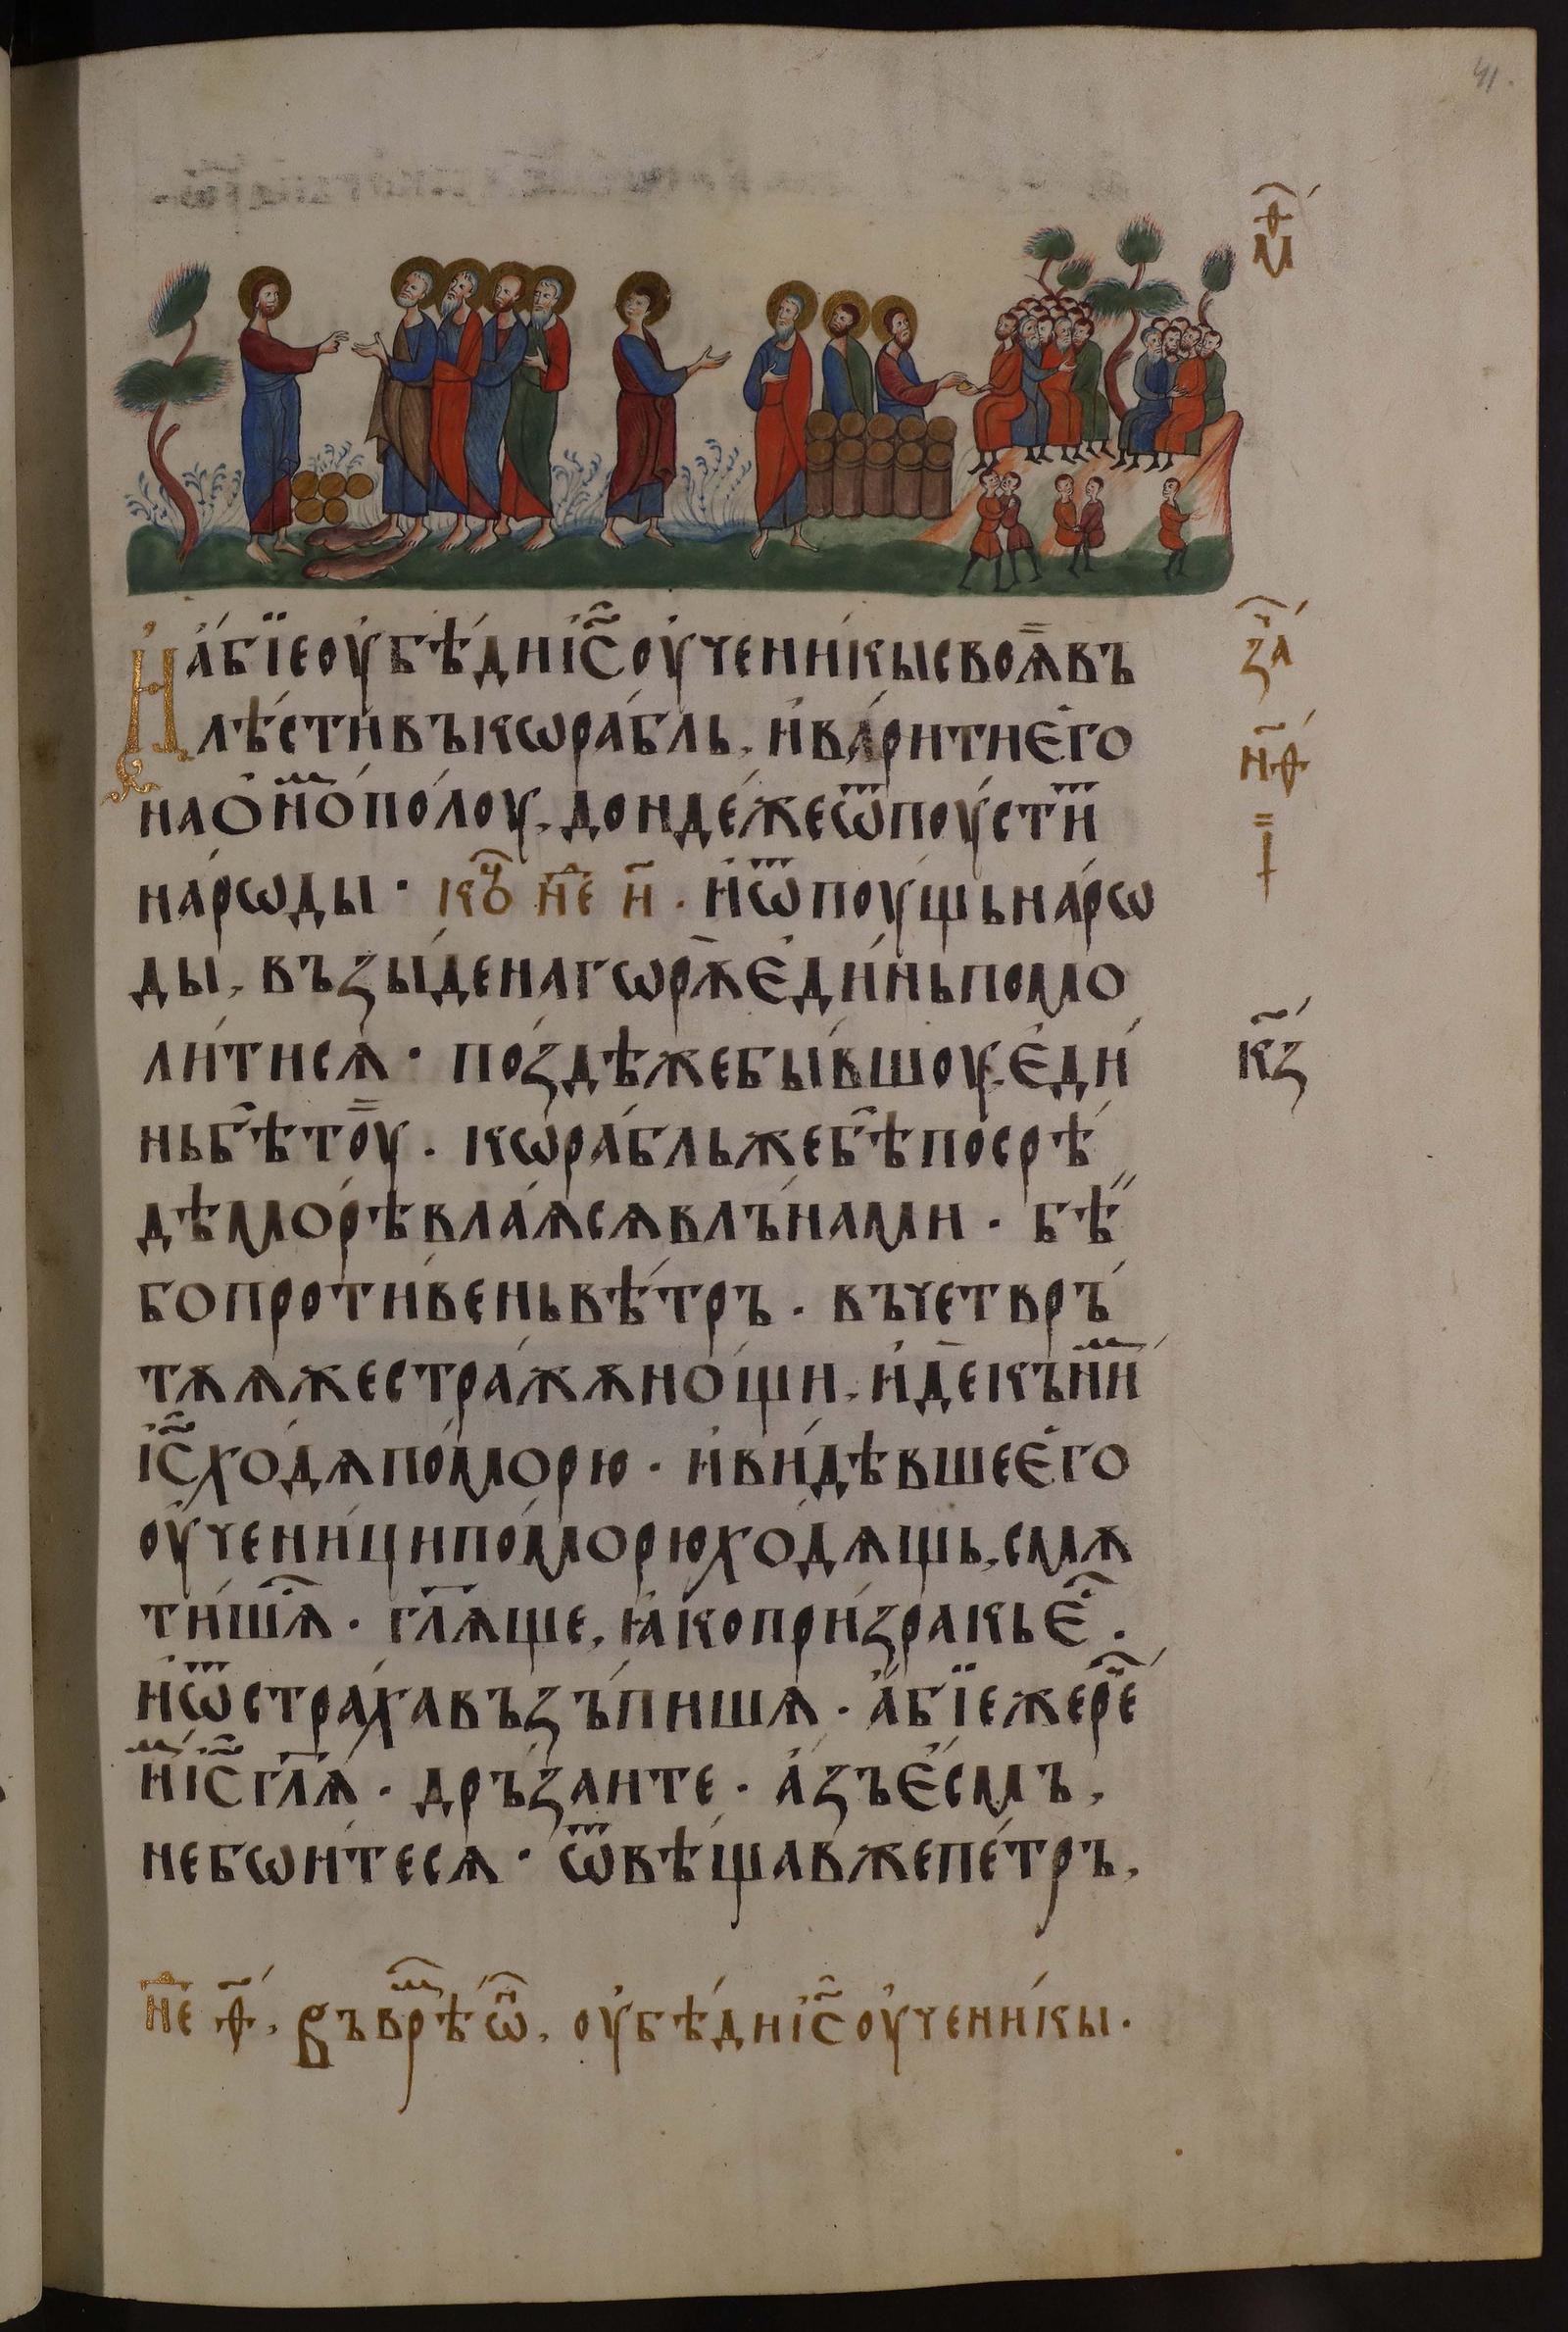 41.
М҃Ѳ
И҆а҆́бїеоу҆бѣ́дииі҆с҃оу҆чени́кысвоѫ҄въ
лѣ́стивъкѡра́бль, и҆варитие҆го
наѻ҆номⷨпо́лоу, дондежеѿпоу́стиⷮ
наро́ѡды · коⷩ҇ц нⷣе и҃ · и҆ѿпоущьна́рѡ
ды, възы́денагѡрѫе҆ди́ньпомо
ли́тисѧ · по́здѣжебы́вшоу, е҆ди́
ньбѣтоу · кѡра́бльжебѣпосрѣ́
дѣмо́рѣвлаѧ́сѧвлъ́нами · бѣ̏
бопроти́веньвѣ́тръ · въчетвръ́
тѫѧжестра́жѫно́щи, и҆де҄къниⷨ
і҆с҃ходѧпомо́рю · и҆ви́дѣвшее҆го
оу҆чени́ципомо́рюходѧщь, смѫ
ти́шѧⷭ · гл҃ѧще, ꙗ҆коприˊзракье҆ⷭ ·
и҆ѿстра́хавъзъпишѧ · а҆́бїежереⷱ
иⷨі҆с҃гл҃ѧ · дръ́заите · а҆́зъе҆́смъ,
небѡи́тесѧ · ѿвѣ́щавжепе́тръ,
за҃
н҃ѳ
І
к҃з
нⷣе ѳ҃, въврѣⷨѡⷩ, оу҆бѣ́дииі҆с҃оу҆чени́кы ·